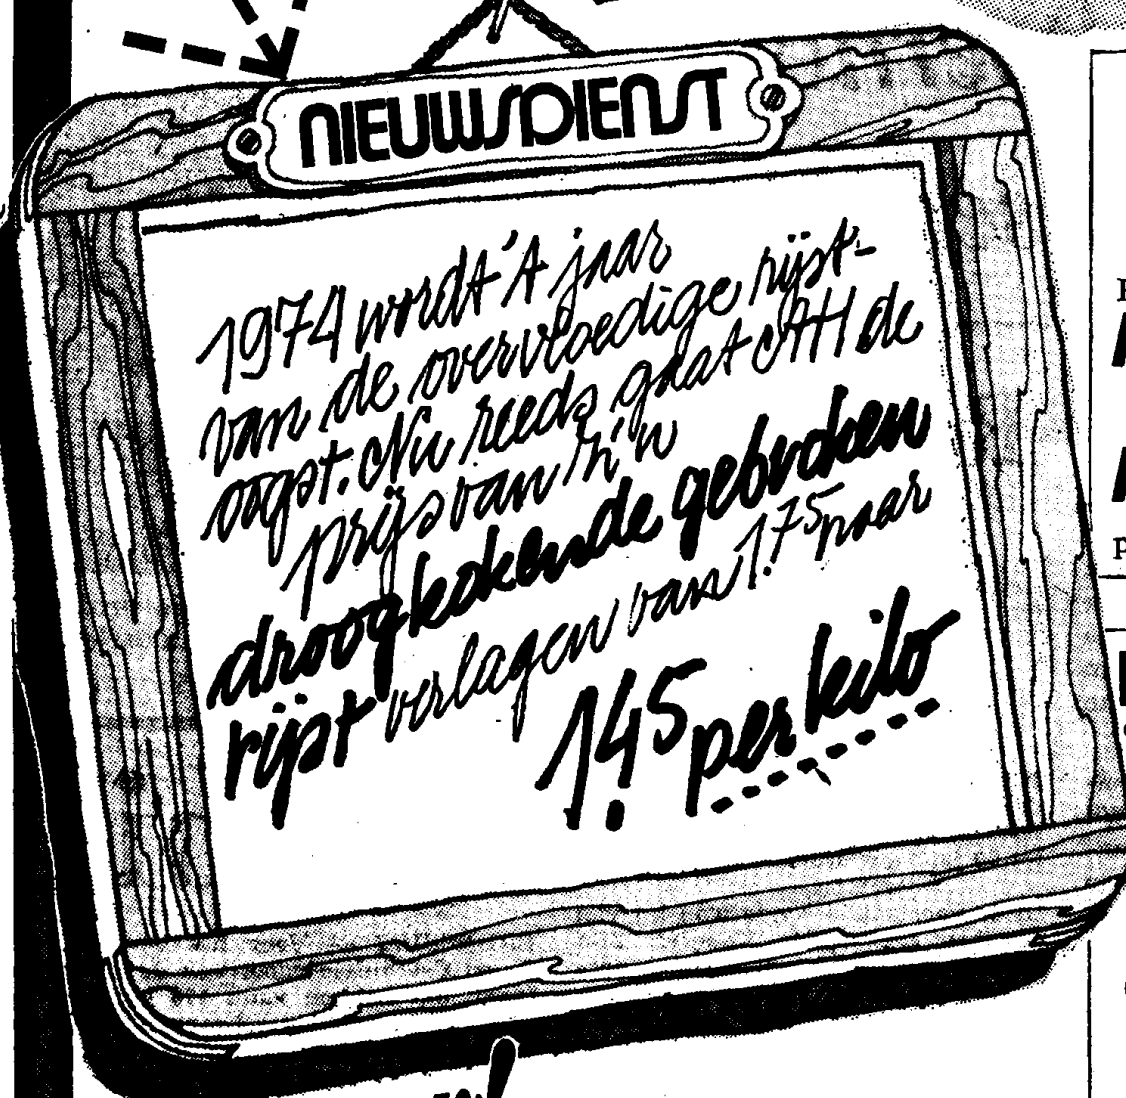 NIEUWSDIENST
1974 wordt 't jaar
van de overvloedige rijst-
oogst. Nu reeds gaat AH de
prijs van z'n
droogkokende gebroken
rijst verlagen van 1.75 naar
1.45 per kilo